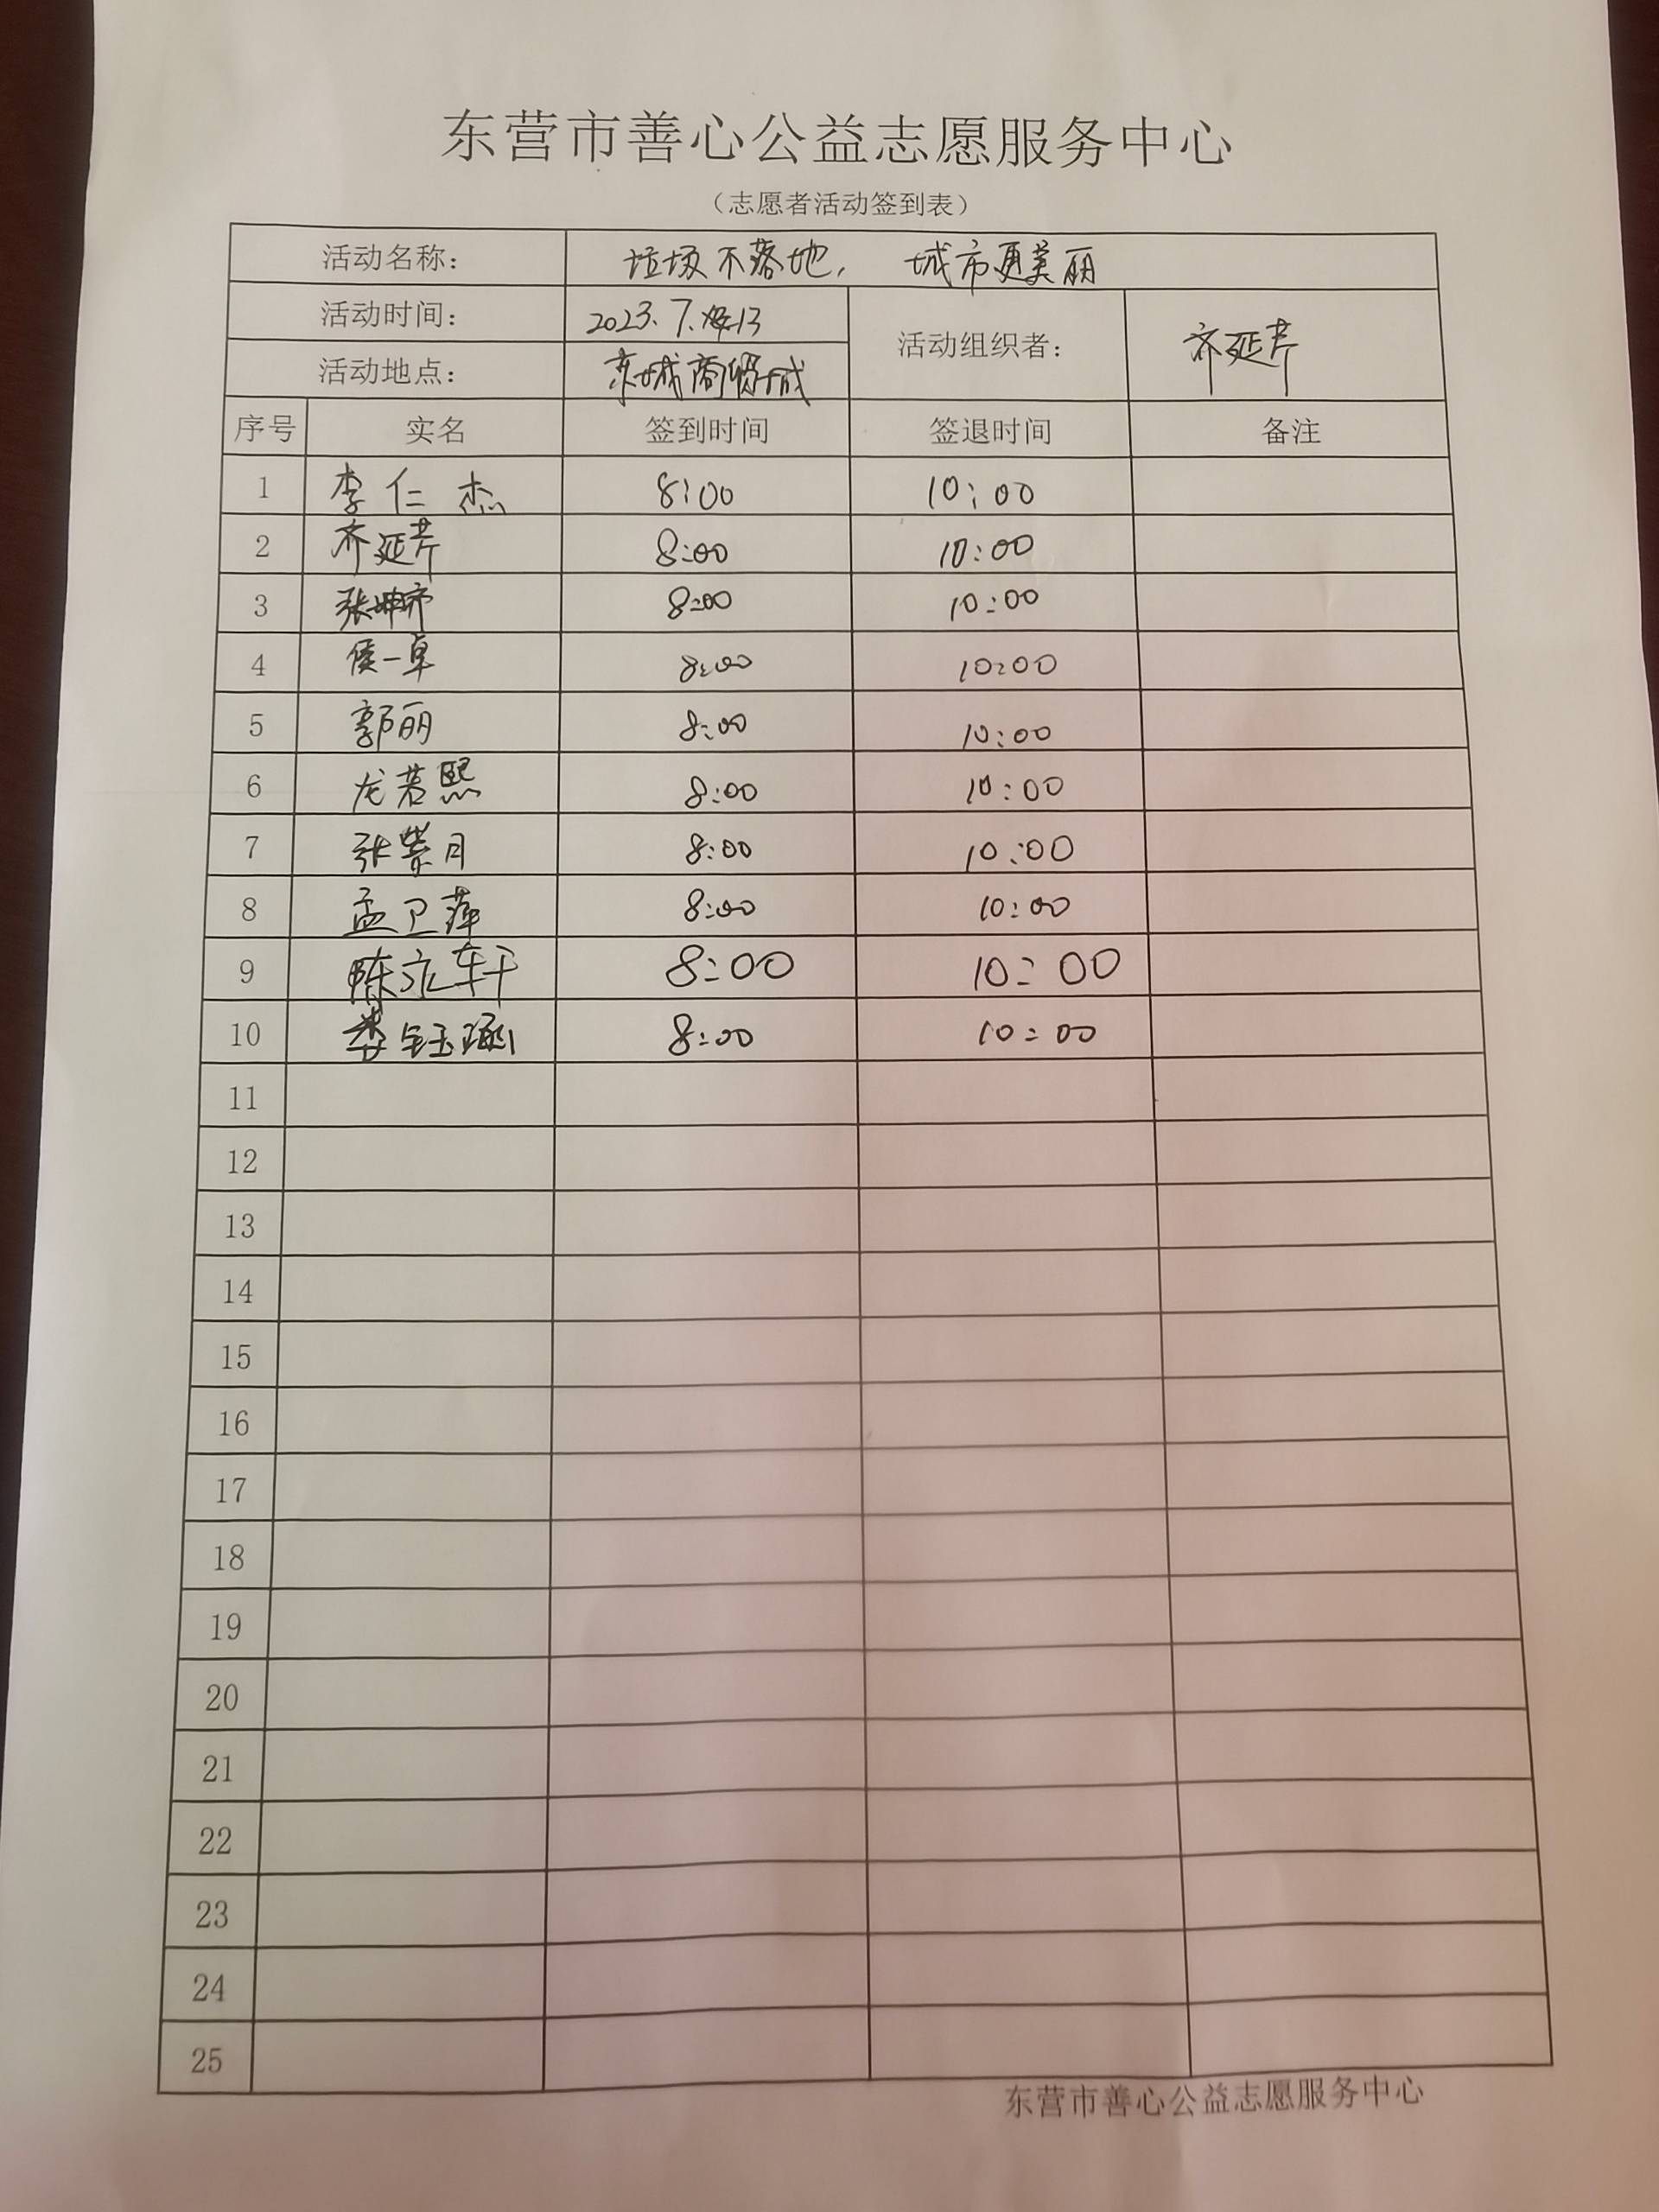 东营市善心公益志愿服务中心
（志愿者活动签到表）
活动名称： 垃圾不落地， 城市更美丽
活动时间： 2023.7.13
活动组织者： 齐延芹
活动地点： 东城商贸城
序号 实名 签到时间 签退时间 备注
1 李仁杰 8:00 10:00
2 齐延芹 8:00 10:00
3 张坤齐 8:00 10:00
4 侯一卓 8:00 10:00
5 郭丽 8:00 10:00
6 龙若熙 8:00 10:00
7 张紫月 8:00 10:00
8 孟卫萍 8:00 10:00
9 陈永轩 8:00 10:00
10 娄钰涵 8:00 10:00
11
12
13
14
15
16
17
18
19
20
21
22
23
24
25
东营市善心公益志愿服务中心